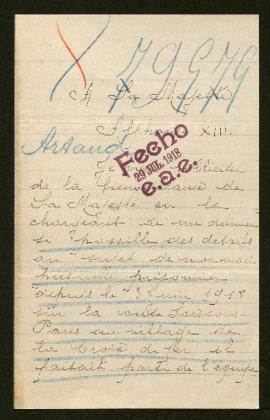 X 79579
A Sa Majesté
Alphonse XIII.
Artaud
Fecho
29 JUL. 1918
e.a.e.
de la bienveillance de
Sa Majesté en la
chargeant de me donner
si possible des détails
au sujet de mon mari
prisonnier
depuis le 1918
sur la route Soissons-
Paris au village de
la Croix de Fer il
faisait partie de l'équipe